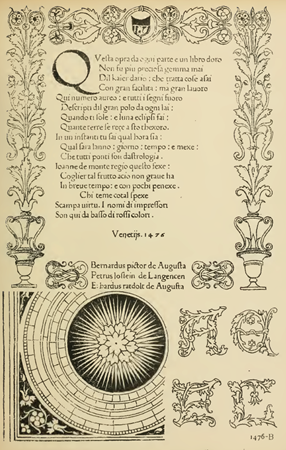 Questa opra da ogni parte e un libro doro
Non fu piu preciosa gemma mai
Dil kalendario: che tratta cose asai
Con gran facilita: ma gran lauoro
Qui numero aureo: e tutti i segni fuoro
Descripti dil gran polo da ogni lai:
Quando il sole: e luna eclipsi fai:
Quante terre se rece a sto thexoro.
In un instanti tu sai qual hora sia:
Qual sara lanno: giorno: tempo: e mexe:
Che tutti ponti son dastrologia.
Ioanne de monte regio questo fexe:
Coglier tal frutto acio non graue sia
In breue tempo: e con pochi penexe.
Chi teme cotal spexe
Scampa uirtu. I nomi di impressori
Son qui da basso di rossi colori.
Venetijs. 1476
Bernardus pictor de Augusta
Petrus loslein de Langencen
Erhardus ratdolt de Augusta
1476-B